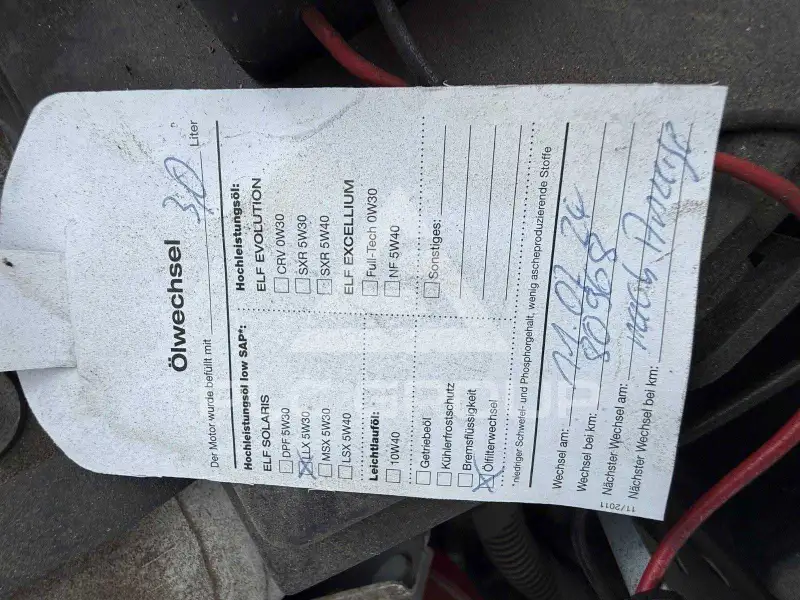 Ölwechsel
Der Motor wurde befüllt mit 3,0 Liter
Hochleistungsöl low SAP*:
ELF SOLARIS
DPF 5W30
LLX 5W30
MSX 5W30
LSX 5W40
Leichtlauföl:
10W40
Getriebeöl
Kühlerfrostschutz
Bremsflüssigkeit
Ölfilterwechsel
Hochleistungsöl:
ELF EVOLUTION
CRV 0W30
SXR 5W30
SXR 5W40
ELF EXCELLIUM
Full-Tech 0W30
NF 5W40
Sonstiges:
*niedriger Schwefel- und Phosphorgehalt, wenig ascheproduzierende Stoffe
Wechsel am: 11.07.24
Wechsel bei km: 80968
Nächster Wechsel am:
Nächster Wechsel bei km: nach Anzeige
11/2011